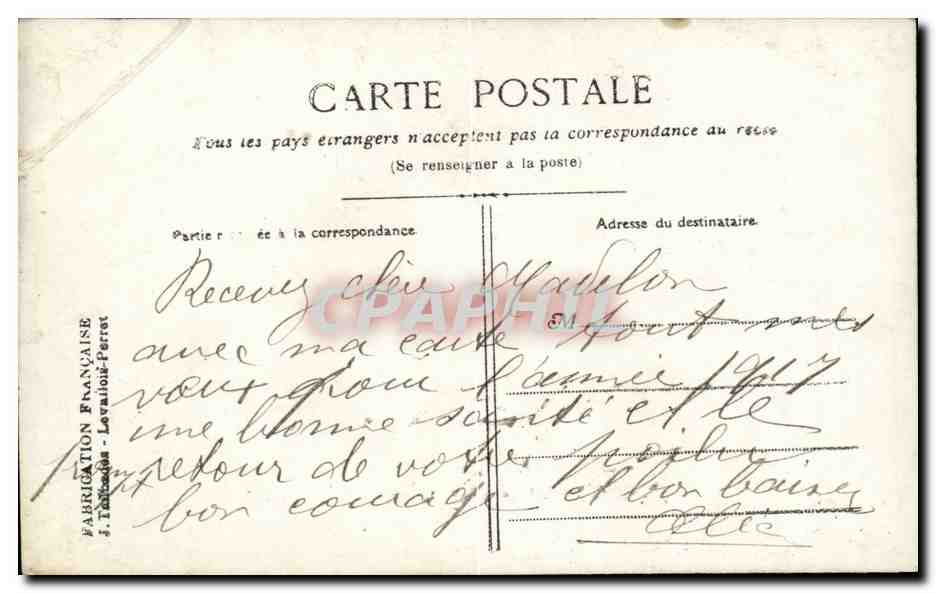 CARTE POSTALE
Tous les pays étrangers n'acceptent pas la correspondance au recto
(Se renseigner à la poste)
Partie r ée à la correspondance
Adresse du destinataire
FABRICATION FRANÇAISE
J. - Levallois-Perret
CPAPHIL
M
Recevez chère
avec ma carte tout mes
vœux pour l'année 1917
une bonne santé et le
prompt retour de votre poilu
bon courage et bon baiser